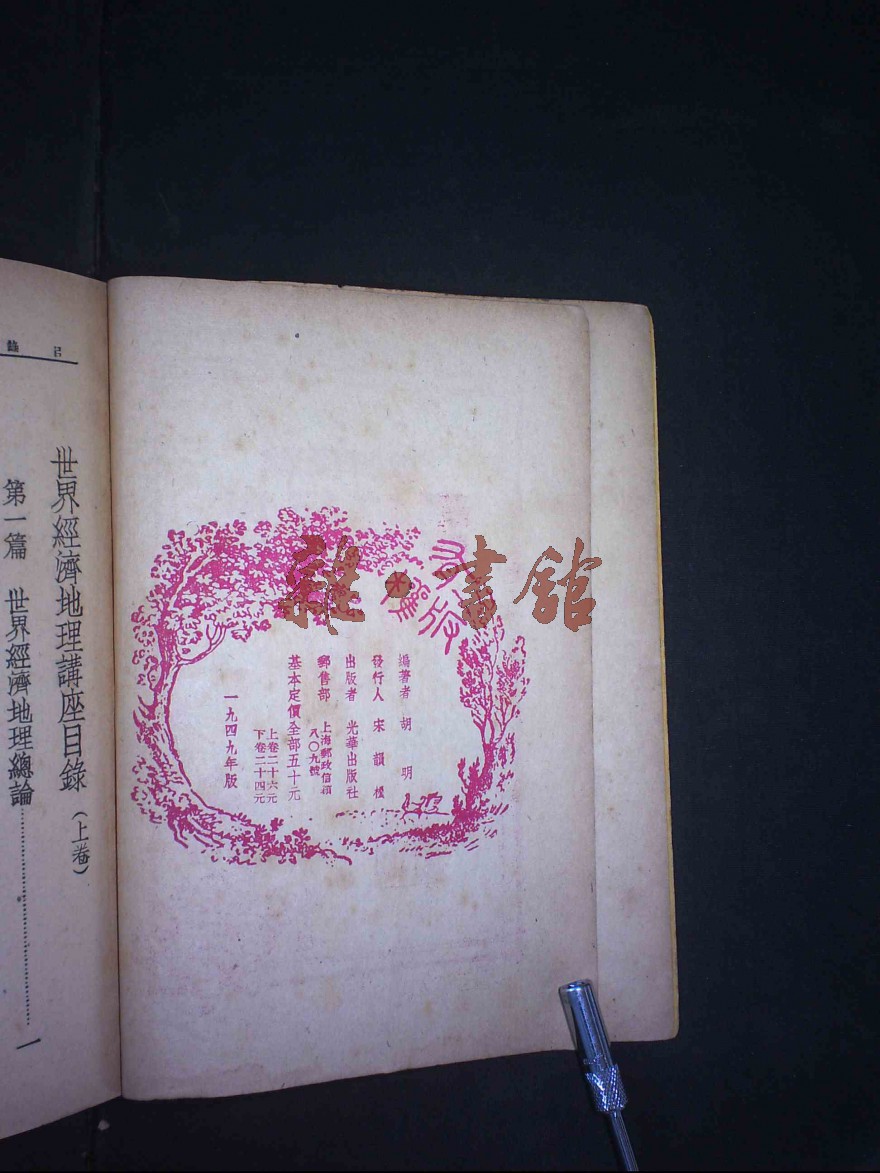 雜·書館
有版權
編著者 胡明
發行人 宋韻樵
出版者 光華出版社
郵售部 上海郵政信箱八〇九號
基本定價全部五十元
上卷二十六元
下卷二十四元
一九四九年版
目錄
世界經濟地理講座目錄（上卷）
第一篇 世界經濟地理總論……一